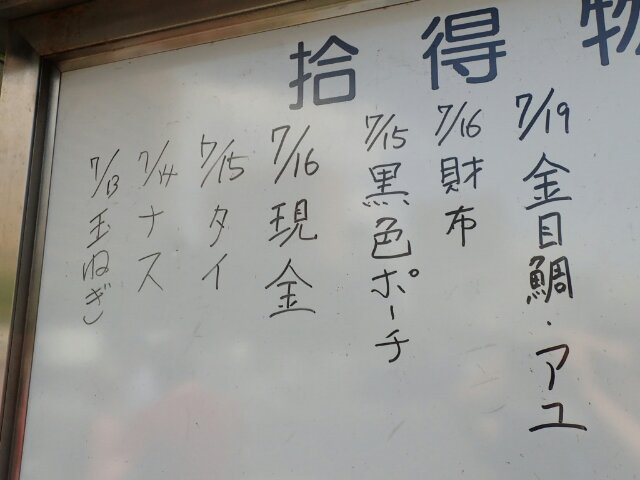 拾得物
7/19 金目鯛・アユ
7/16 財布
7/15 黒色ポーチ
7/16 現金
7/15 タイ
7/14 ナス
7/13 玉ねぎ